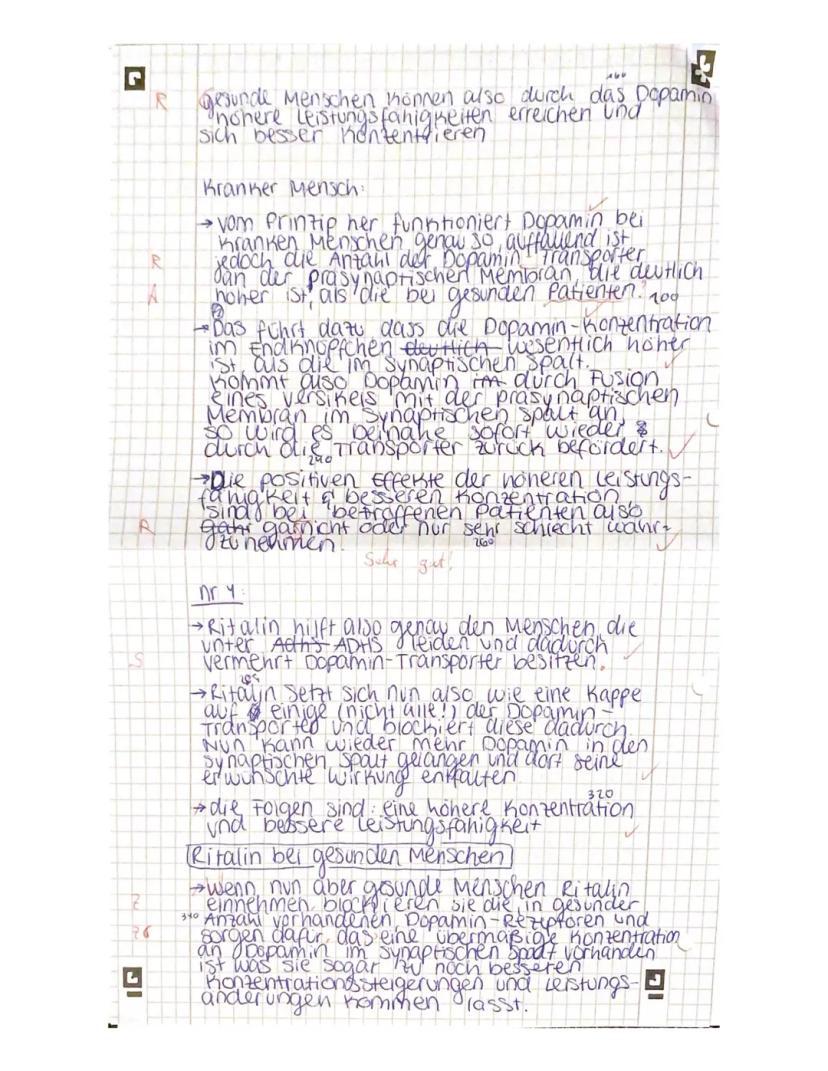 160
R gesunde Menschen können also durch das Dopamin
höhere Leistungsfähigkeiten erreichen und
sich besser konzentrieren
Kranker Mensch:
→ vom Prinzip her funktioniert Dopamin bei
kranken Menschen genau so, auffallend ist
R jedoch die Anzahl der Dopamin Transporter
an der präsynaptischen Membran, die deutlich
A höher ist, als die bei gesunden Patienten. 200
→ Das führt dazu dass die Dopamin-Konzentration
im Endknöpfchen deutlich wesentlich höher
ist aus die im synaptischen Spalt.
Kommt also Dopamin im durch Fusion
eines Versikels mit der präsynaptischen
Membran im synaptischen Spalt an,
so wird es beinahe sofort wieder
durch die Transporter zurück befördert.
240
→ Die positiven Effekte der höheren Leistungs-
fähigkeit & besseren Konzentration
sind bei betroffenen Patienten also
R garnicht oder nur sehr schlecht wahr-
zunehmen. 260
Sehr gut!
nr 4:
→ Ritalin hilft also genau den Menschen, die
unter Adhs ADHS leiden und dadurch
S vermehrt Dopamin-Transporter besitzen.
→ Ritalin setzt sich nun also wie eine Kappe
auf einige (nicht alle!) der Dopamin-
Transporter und blockiert diese dadurch.
Nun kann wieder mehr Dopamin in den
synaptischen Spalt gelangen und dort seine
erwünschte Wirkung entfalten.
320
→ die Folgen sind: eine höhere Konzentration
und bessere Leistungsfähigkeit
Ritalin bei gesunden Menschen
→ Wenn nun aber gesunde Menschen Ritalin
Z einnehmen, blockieren sie die, in gesunder
340 Anzahl vorhandenen, Dopamin-Rezeptoren und
sorgen dafür, das eine übermäßige Konzentration
an Dopamin im synaptischen Spalt vorhanden
ist was sie sogar zu noch besseren
Konzentrationssteigerungen und Leistungs-
änderungen kommen lässt.